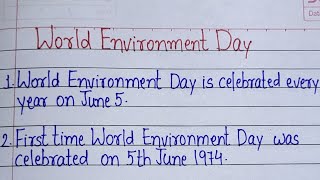 World Environment Day
1. World Environment Day is celebrated every
year on June 5.
2. First time World Environment Day was
celebrated on 5th June 1974.